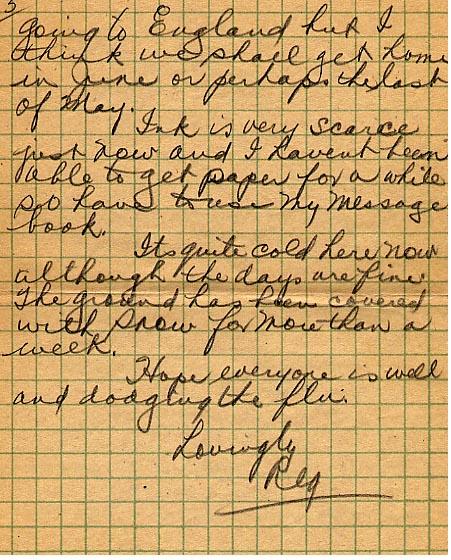 3
going to England but I
think we shall get home
in june or perhaps the last
of May.
Ink is very scarce
just now and I havent been
able to get paper for a while
so have to use my message
book.
Its quite cold here now
although the days are fine.
The ground has been covered
with snow for more than a
week.
Hope everyone is well
and dodging the flu.
Lovingly
Reg